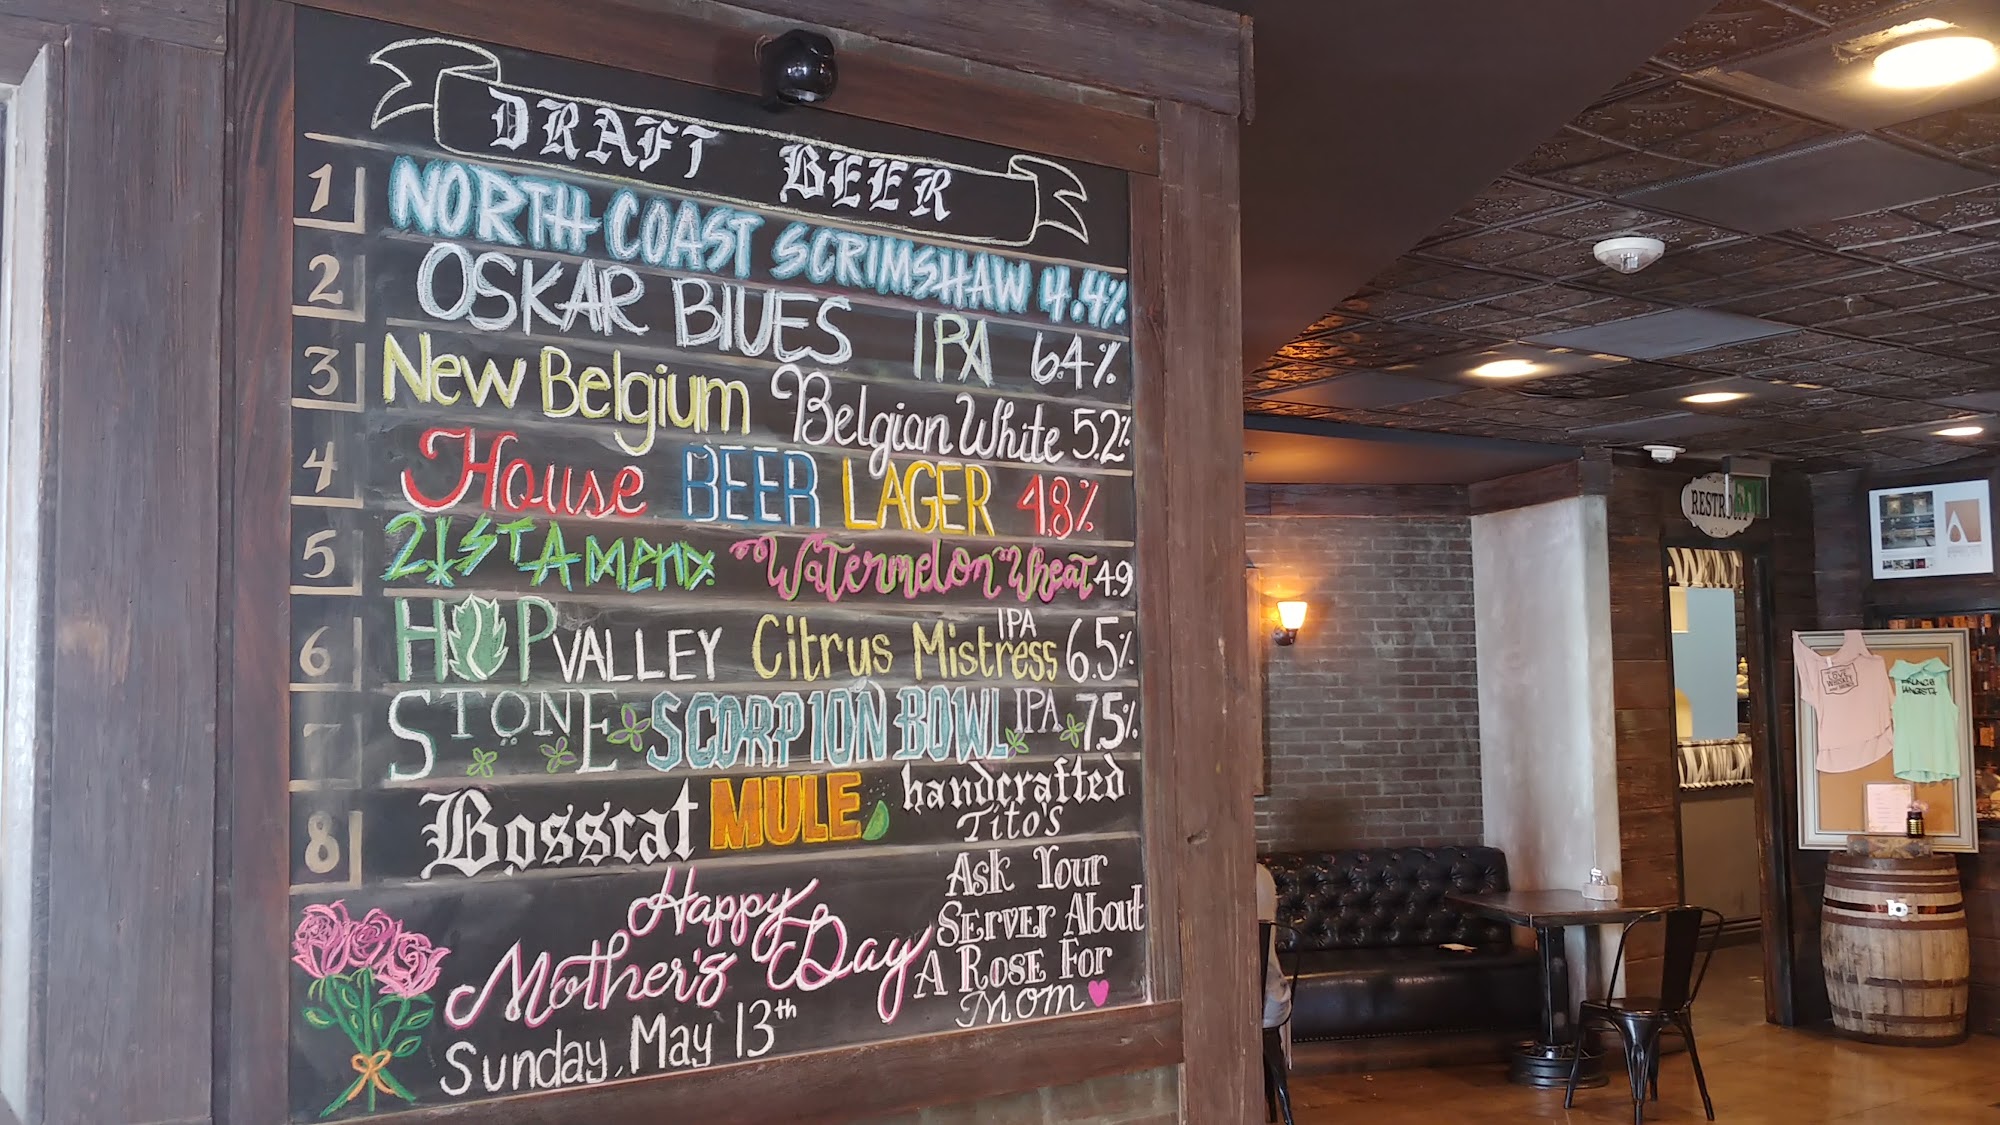 DRAFT BEER
1 NORTH COAST SCRIMSHAW 4.4%
2 OSKAR BLUES IPA 6.4%
3 New Belgium Belgian White 5.2%
4 House BEER LAGER 4.8%
5 21ST AMEND. Watermelon Wheat 4.9
6 HOP VALLEY Citrus Mistress IPA 6.5%
7 STONE SCORPION BOWL IPA 7.5%
8 Bosscat MULE handcrafted
Tito's
Happy
Mother's Day
Sunday, May 13th
Ask Your
Server About
A Rose For
Mom
RESTROOM
LOVE
WHISKEY
BRUNCH